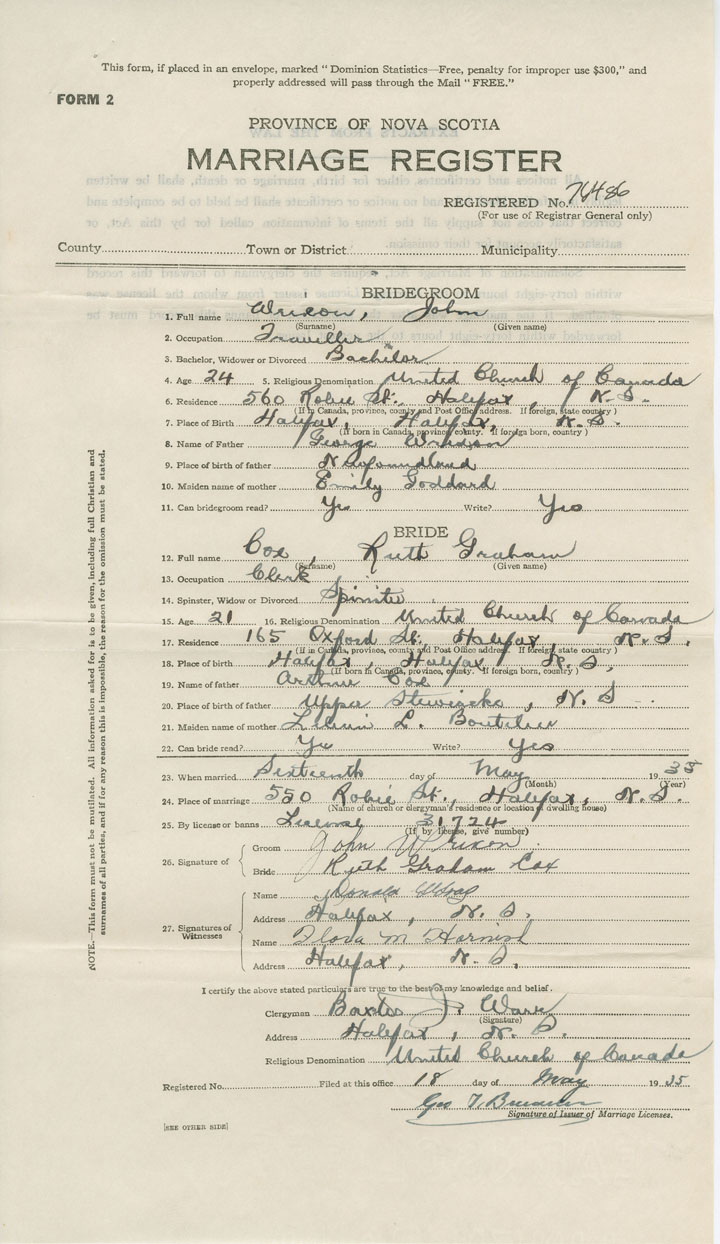 This form, if placed in an envelope, marked “ Dominion Statistics—Free, penalty for improper use $300,” and
properly addressed will pass through the Mail “ FREE.”
FORM 2
PROVINCE OF NOVA SCOTIA
MARRIAGE REGISTER
REGISTERED No. 76486
(For use of Registrar General only)
County Town or District Municipality
BRIDEGROOM
1. Full name Wrixon, John
(Surname) (Given name)
2. Occupation Traveller
3. Bachelor, Widower or Divorced Bachelor
4. Age 24 5. Religious Denomination United Church of Canada
6. Residence 560 Robie St. Halifax, N. S.
(If in Canada, province, county and Post Office address. If foreign, state country )
7. Place of Birth Halifax, Halifax, N. S.
(If born in Canada, province, county. If foreign born, country )
8. Name of Father George Wrixon
9. Place of birth of father Newfoundland
10. Maiden name of mother Emily Goddard
11. Can bridegroom read? Yes Write? Yes
BRIDE
12. Full name Cox, Ruth Graham
(Surname) (Given name)
13. Occupation Clerk
14. Spinster, Widow or Divorced Spinster
15. Age 21 16. Religious Denomination United Church of Canada
17. Residence 165 Oxford St. Halifax, N. S.
(If in Canada, province, county and Post Office address. If foreign, state country )
18. Place of birth Halifax, Halifax, N. S.
(If born in Canada, province, county. If foreign born, country )
19. Name of father Arthur Cox
20. Place of birth of father Upper Stewiacke, N. S.
21. Maiden name of mother L. Boutilier
22. Can bride read? Yes Write? Yes
23. When married Sixteenth day of May 1935
(Month) (Year)
24. Place of marriage 550 Robie St., Halifax, N. S.
(Name of church or clergyman's residence or location of dwelling house)
25. By license or banns License 31724
(If by license, give number)
26. Signature of
Groom John Wrixon
Bride Ruth Graham Cox
27. Signatures of Witnesses
Name Donald
Address Halifax, N. S.
Name Flora M Harnish
Address Halifax, N. S.
I certify the above stated particulars are true to the best of my knowledge and belief.
Clergyman Baxter J.
(Signature)
Address Halifax, N. S.
Religious Denomination United Church of Canada
Registered No. Filed at this office 18 day of May 1935
Geo T.
Signature of Issuer of Marriage Licenses.
[SEE OTHER SIDE]
NOTE.—This form must not be mutilated. All information asked for is to be given, including full Christian and
surnames of all parties, and if for any reason this is impossible, the reason for the omission must be stated.